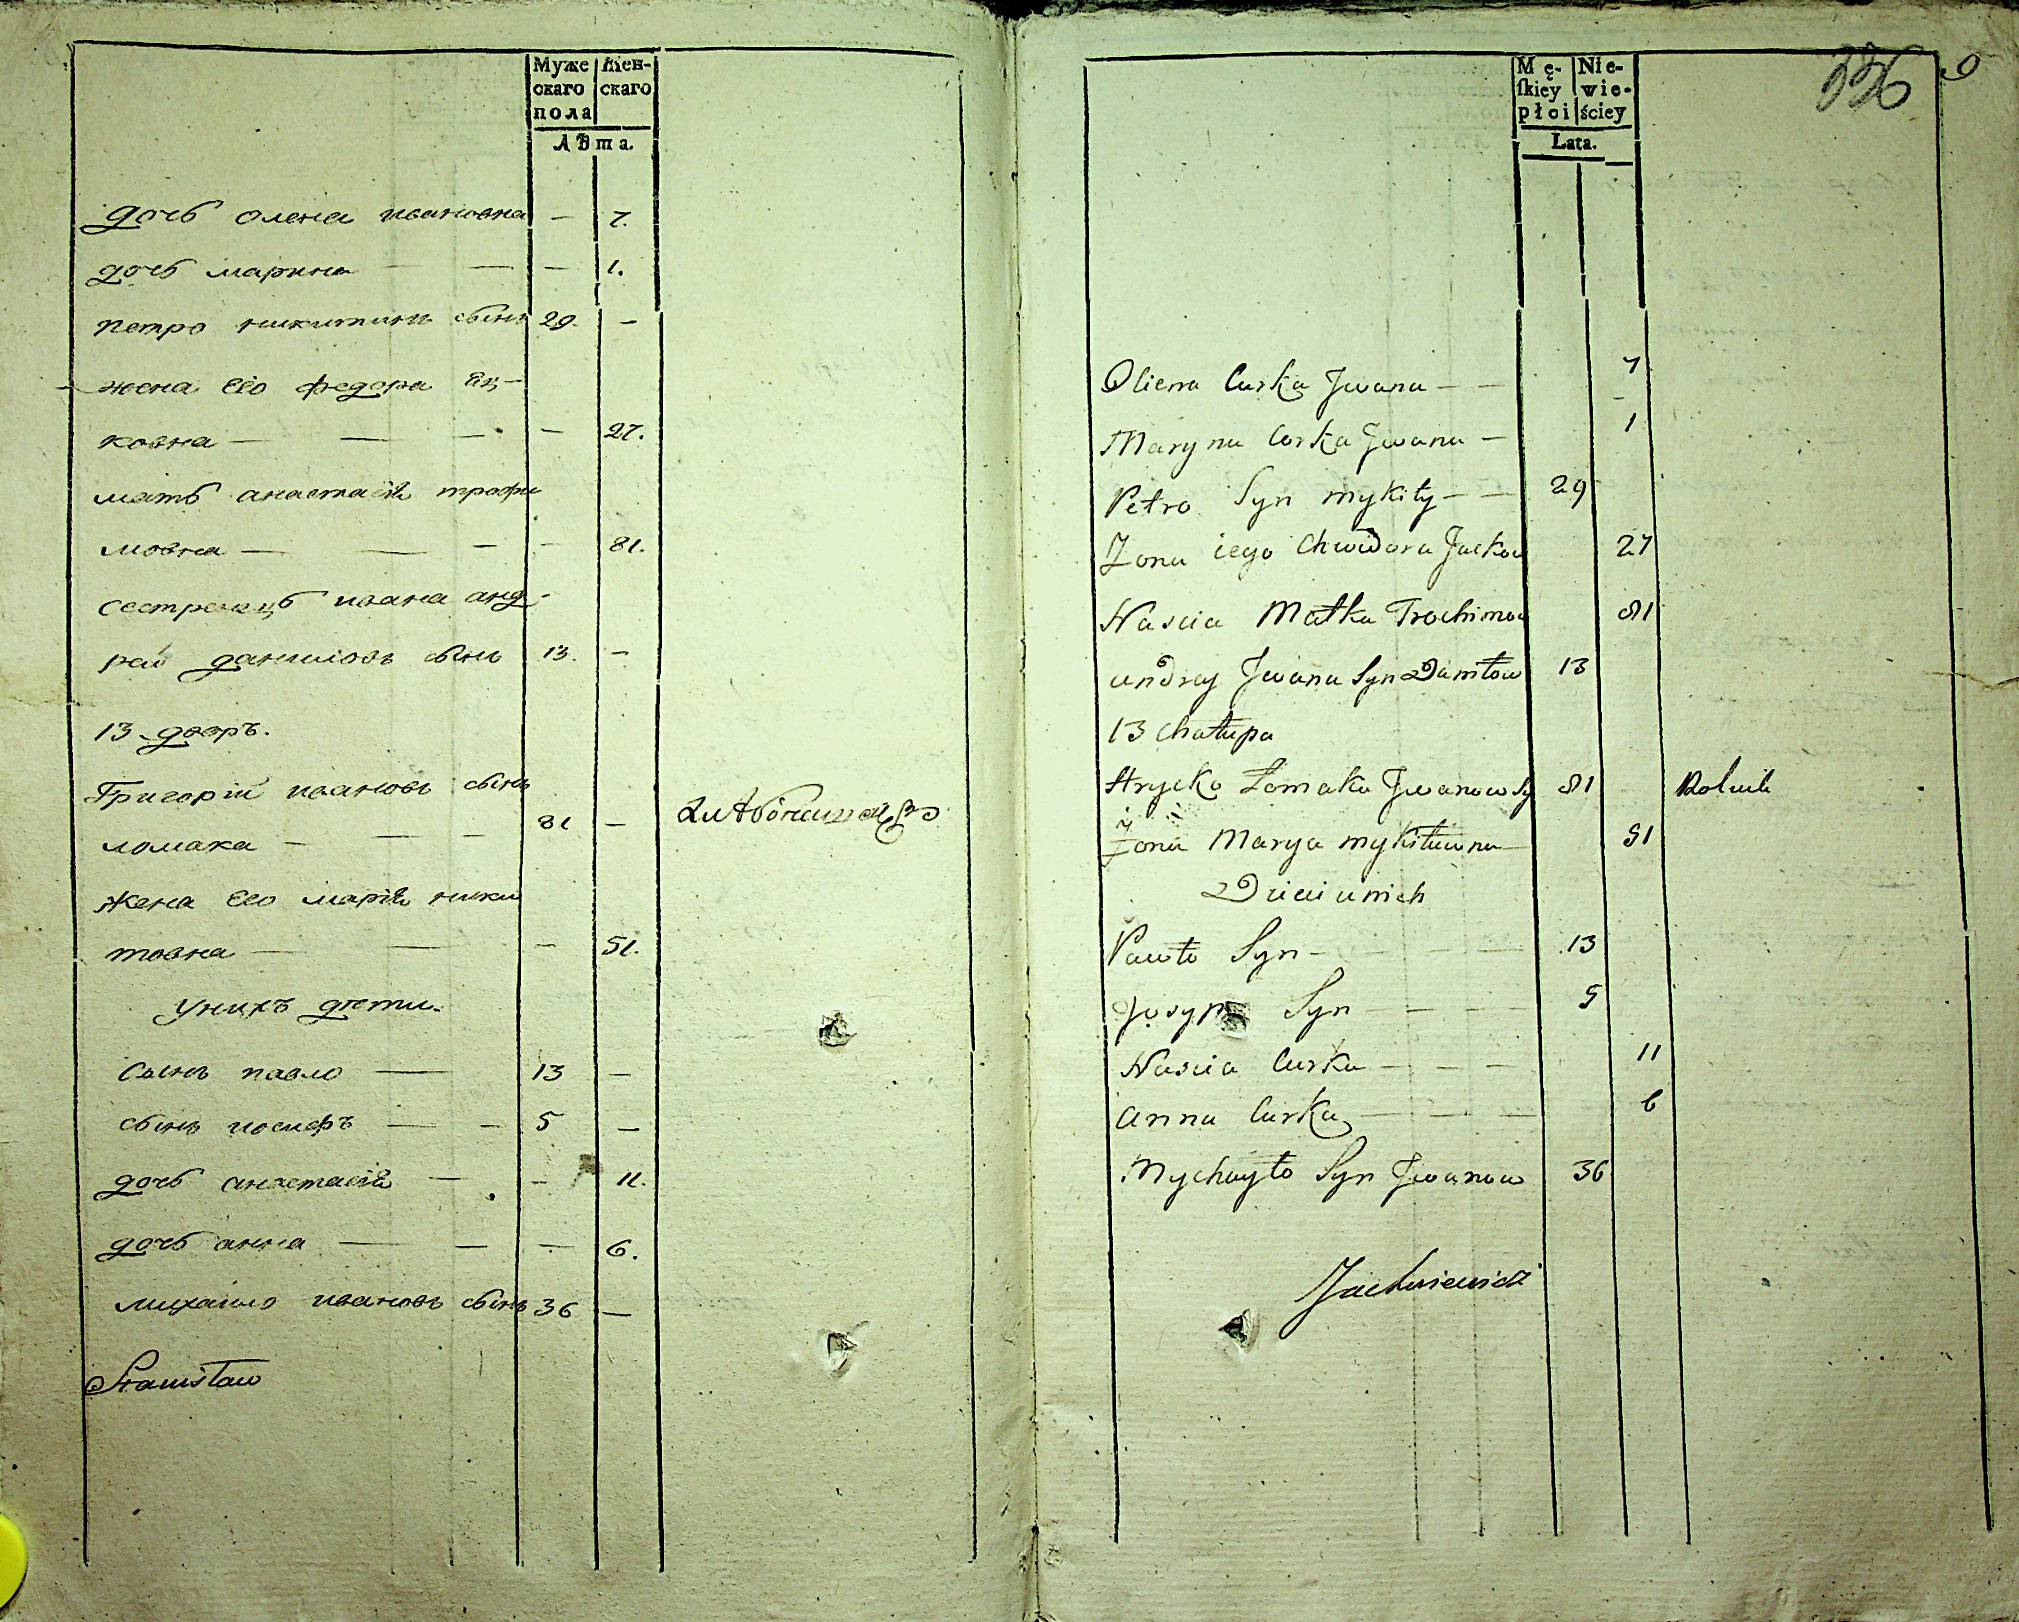 Муже Жен-
скаго скаго
пола
лѣта.
дочь олена ивановна — 7.
дочь марина — 1.
петро никитинъ сынъ 29. —
жена его федора яц-
ковна — 27.
мать анастасія трофи
мовна — 81.
сестренецъ ивана анд-
рей даниловъ сынъ 13. —
13 дворъ.
Григорій ивановъ сынъ
ломака — 81 — хлѣбопашецъ
жена его марія ники
товна — 51.
у нихъ дѣти.
сынъ павло — 13 —
сынъ иосифъ — 5 —
дочь анастасія — 11.
дочь анна — 6.
михайло ивановъ сынъ 36 —
Stanisław
Mę- Nie-
skiey wie-
płci ściey
Lata.
336 9
Oliena Curka Jwana — 7
Maryna Corka Jwana — 1
Petro Syn mykity — 29
Zona iego Chwidora Jackow 27
Nascia Matka Trochimow 81
andrey Jwana Syn Daniłow 13
13 Chałupa
Hrycko Łomaka Jwanow Sy 81 Rolnik
Zona Marya mykitowna 51
Dzieci u nich
Pawło Syn — 13
Josyp Syn — 5
Nascia Curka — 11
anna Curka — 6
Mychayło Syn Jwanow 36